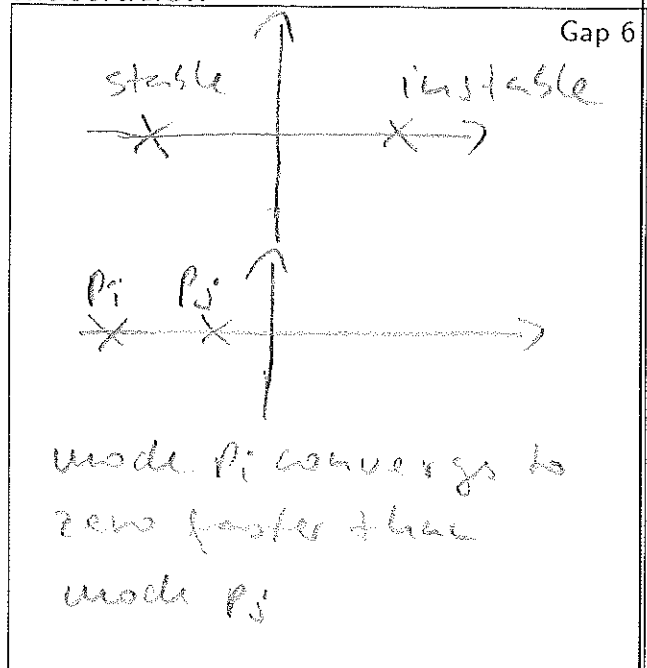 Gap 6
stable instable
Pi Pj
mode Pi convergs to
zero faster than
mode Pj